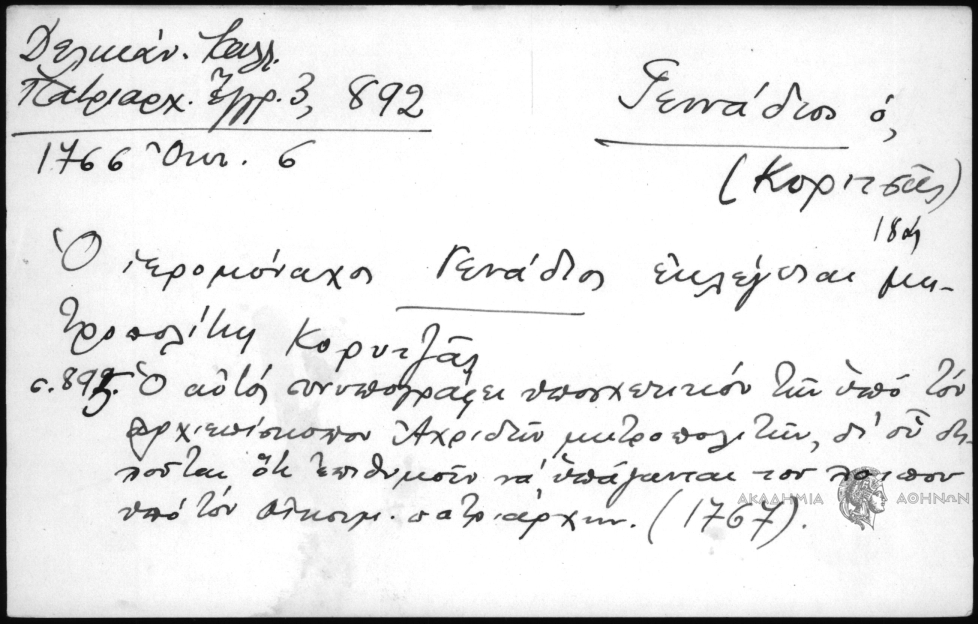 Δελικάν. Καλλ.
Πατριαρχ. Ἔγγρ. 3, 892
1766 Ὀκτ. 6
Γεννάδιος ὁ,
(Κοριτσᾶς)
18ος
Ὁ ἱερομόναχος Γενάδιος ἐκλέγεται μη-
τροπολίτης Κορυτζᾶς
σ. 895. Ὁ αὐτὸς συνυπογράφει ὑποσχετικόν τῶν ὑπό τόν
ἀρχιεπίσκοπον Ἀχριδῶν μητροπολιτῶν, δι' οὗ δη-
λοῦται ὅτι ἐπιθυμοῦν νά ὑπάγωνται τοῦ λοιποῦ
ὑπό τόν Οἰκουμ. πατριάρχην. (1767).
ΑΚΑΔΗΜΙΑ ΑΘΗΝΩΝ